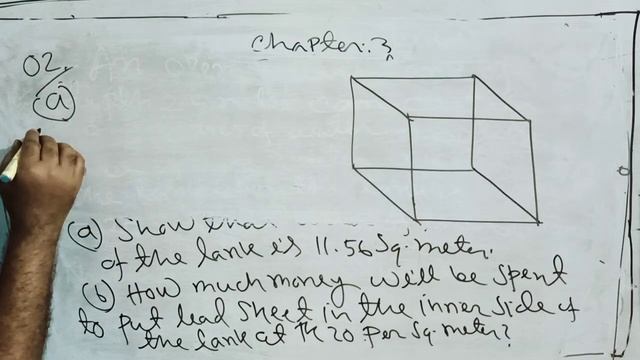 Chapter:3
02.
(a)
(a) Show that
of the tank is 11.56 Sq. meter.
(b) How much money will be spent
to put lead sheet in the inner side of
the tank at TK 20 per Sq. meter?